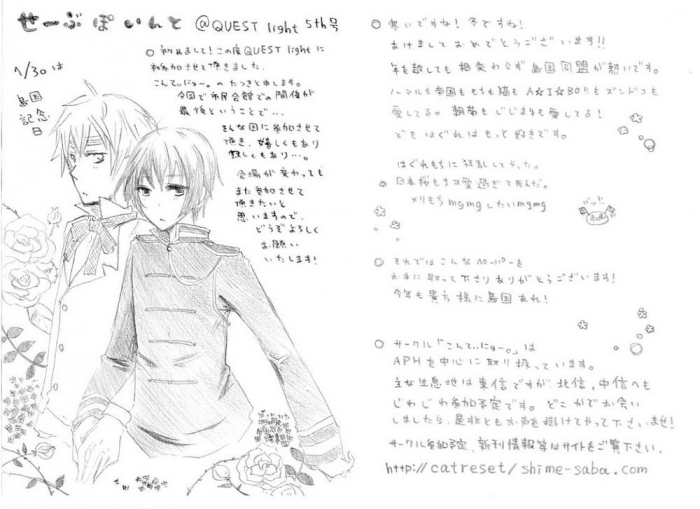 せーぶぽいんと @QUEST light 5th号
1/30は
島国
記念
日
○ 初めまして!この度QUEST lightに
参加させて頂きました、
こんてぃにゅー。の たつきと申します。
今回で 市民会館での開催が
最後ということで…
そんな回に参加させて
頂き、嬉しくもあり
寂しくもあり…。
会場が変わっても
また参加させて
頂きたいと
思いますので、
どうぞよろしく
お願い
いたします!
○ 寒いですね!冬ですね!
あけましておめでとうございます!!
年を越しても相変わらず島国同盟が熱いです。
ノーマルも帝国ももちも猫も A☆I☆BOもズンドコも
愛してる。朝菊もじじまゆも愛してる!
でもはぐれはもっと好きです。
はぐれもちに
日本桜もち可愛過ぎて死んだ。
メリもちmgmgしたいmgmg
○ それではこんなペーパーを
お手に取って下さりありがとうございます!
今年も貴方様に島国あれ!
○ サークル「こんてぃにゅー。」は
APHを中心に取り扱っています。
主な生息地は東信ですが、北信、中信へも
じわじわ参加予定です。どこかでお会い
しましたら、是非ともお声を掛けてやって下さいませ!
サークル参加予定、新刊情報等はサイトをご覧下さい。
http://catreset/shime-saba.com